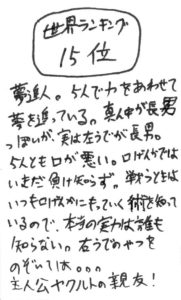 世界ランキング
15位
夢追人。5人で力をあわせて
夢を追っている。真ん中が長男
っぽいが、実は左うでが長男。
5人とも口が悪い。口げんかでは
いまだ負け知らず。戦うときは
いつも口げんかにもっていく術を知って
いるので、本当の実力は誰も
知らない。右うでのやつを
のぞいては。。。
主人公ヤクルトの親友!